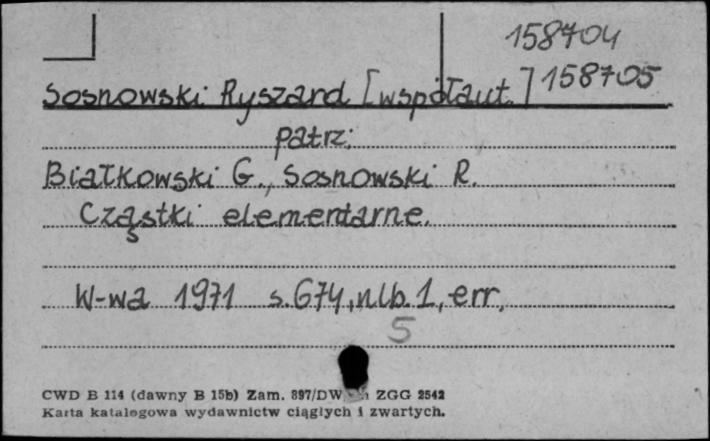 158704
Sosnowski Ryszard [współaut.] 158705
patrz:
Białkowski G., Sosnowski R.
Cząstki elementarne.
W-wa 1971 s. 674, nlb. 1, err.
5
CWD B 114 (dawny B 15b) Zam. 897/DW ZGG 2542
Karta katalogowa wydawnictw ciągłych i zwartych.